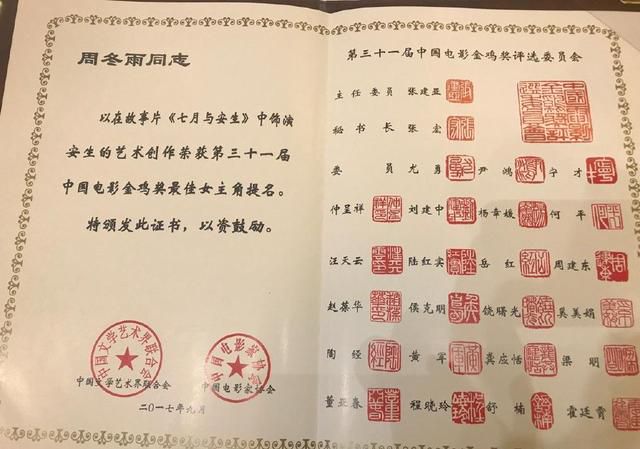 周冬雨同志
以在故事片《七月与安生》中饰演
安生的艺术创作荣获第三十一届
中国电影金鸡奖最佳女主角提名。
特颁发此证书，以资鼓励。
中国文学艺术界联合会
中国电影家协会
中国文学艺术界联合会 中国电影家协会
二〇一七年九月
第三十一届中国电影金鸡奖评选委员会
主任委员 张建亚
秘书长 张宏
委员 尤勇 尹鸿 宁才
仲呈祥 刘建中 杨幸媛 何平
汪天云 陆红实 岳红 周建东
赵葆华 侯克明 饶曙光 吴美娟
陶经 黄军 龚应恬 梁明
董亚春 程晓玲 舒楠 霍廷霄